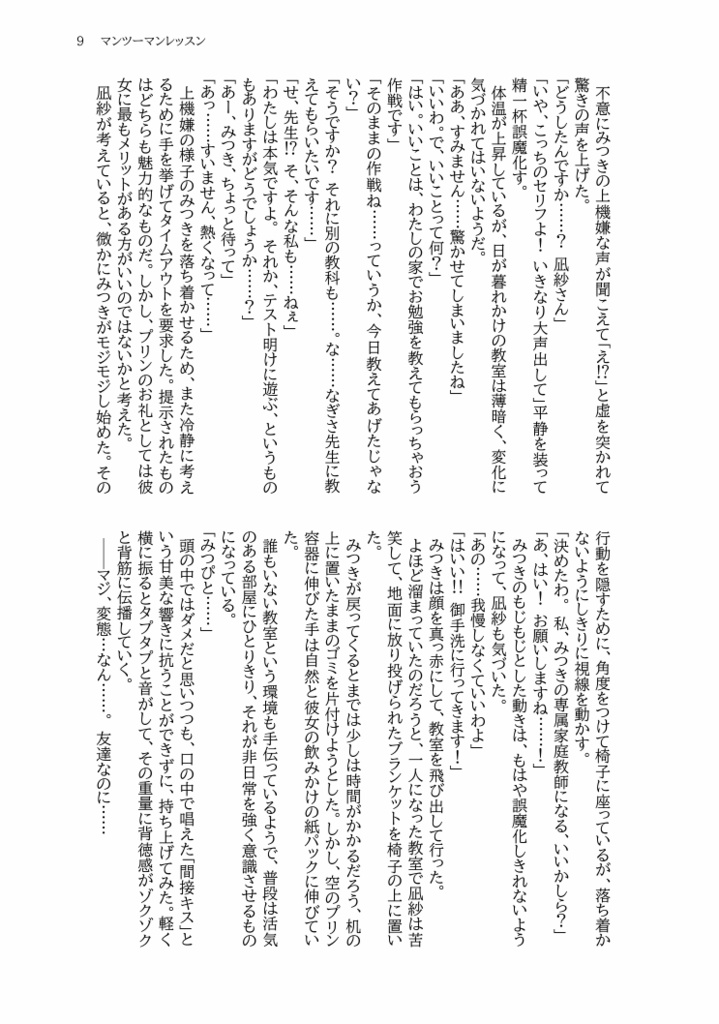 9　マンツーマンレッスン
　不意にみつきの上機嫌な声が聞こえて「え!?」と虚を突かれて
驚きの声を上げた。
「どうしたんですか……？　凪紗さん」
「いや、こっちのセリフよ！　いきなり大声出して」平静を装って
精一杯誤魔化す。
　体温が上昇しているが、日が暮れかけの教室は薄暗く、変化に
気づかれてはいないようだ。
「ああ、すみません……驚かせてしまいましたね」
「いいわ。で、いいことって何？」
「はい。いいことは、わたしの家でお勉強を教えてもらっちゃおう
作戦です」
「そのままの作戦ね……っていうか、今日教えてあげたじゃな
い？」
「そうですか？　それに別の教科も……。な……なぎさ先生に教
えてもらいたいです……」
「せ、先生!?　そ、そんな私も……ねぇ」
「わたしは本気ですよ。それか、テスト明けに遊ぶ、というもの
もありますがどうでしょうか……？」
「あー、みつき、ちょっと待って」
「あっ……すいません、熱くなって……」
　上機嫌の様子のみつきを落ち着かせるため、また冷静に考え
るために手を挙げてタイムアウトを要求した。提示されたもの
はどちらも魅力的なものだ。しかし、プリンのお礼としては彼
女に最もメリットがある方がいいのではないかと考えた。
　凪紗が考えていると、微かにみつきがモジモジし始めた。その
行動を隠すために、角度をつけて椅子に座っているが、落ち着か
ないようにしきりに視線を動かす。
「決めたわ。私、みつきの専属家庭教師になる、いいかしら？」
「あ、はい！　お願いしますね……！」
　みつきのもじもじとした動きは、もはや誤魔化しきれないよう
になって、凪紗も気づいた。
「あの……我慢しなくていいわよ」
「はいい!!　御手洗に行ってきます！」
　みつきは顔を真っ赤にして、教室を飛び出して行った。
　よほど溜まっていたのだろうと、一人になった教室で凪紗は苦
笑して、地面に放り投げられたブランケットを椅子の上に置い
た。
　みつきが戻ってくるとまでは少しは時間がかかるだろう、机の
上に置いたままのゴミを片付けようとした。しかし、空のプリン
容器に伸びた手は自然と彼女の飲みかけの紙パックに伸びてい
た。
　誰もいない教室という環境も手伝っているようで、普段は活気
のある部屋にひとりきり、それが非日常を強く意識させるもの
になっている。
「みつぴと……」
　頭の中ではダメだと思いつつも、口の中で唱えた「間接キス」と
いう甘美な響きに抗うことができずに、持ち上げてみた。軽く
横に振るとタプタプと音がして、その重量に背徳感がゾクゾク
と背筋に伝播していく。
　――マジ、変態…なん……。　友達なのに……